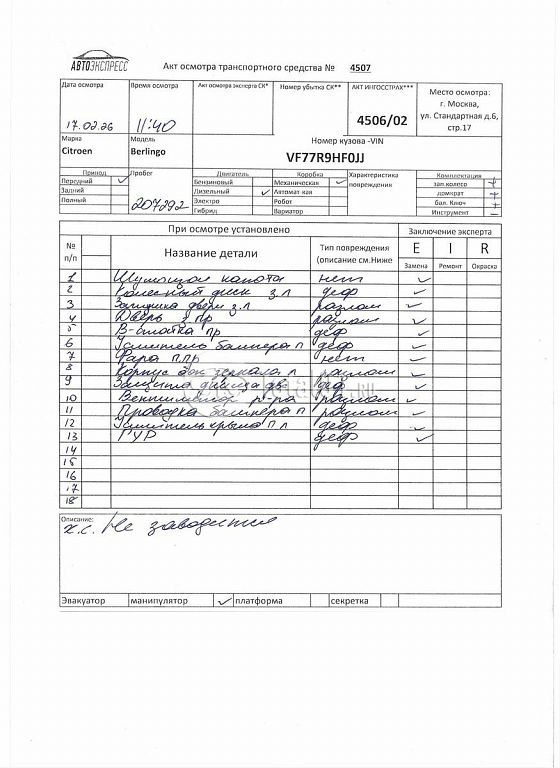 АВТОЭКСПРЕСС
Акт осмотра транспортного средства № 4507
Дата осмотра Время осмотра Акт осмотра эксперта СК* Номер убытка СК** АКТ ИНГОССТРАХ*** Место осмотра:
г. Москва,
ул. Стандартная д.6,
стр.17
17.02.26 11:40 4506/02
Марка Модель Номер кузова -VIN
Citroen Berlingo VF77R9HF0JJ
Привод Пробег Двигатель Коробка Характеристика повреждения Комплектация
Передний ✓ Бензиновый Механическая ✓ зап.колесо +
Задний Дизельный ✓ Автомат-кая домкрат +
Полный 207292 Электро Робот бал. Ключ +
Гибрид Вариатор Инструмент –
При осмотре установлено Заключение эксперта
№ п/п Название детали Тип повреждения (описание см.Ниже E I R
Замена Ремонт Окраска
1 капота нет ✓
2 Колесный диск з.л деф ✓
3 двери з.л разлом ✓
4 Дверь з пр разлом ✓
5 В-стойка пр деф ✓
6 Усилитель бампера п деф ✓
7 Фара п.пр нет ✓
8 Корпус зеркала л разлом ✓
9 Защита днища дв деф ✓
10 Вентилятор р-ра разлом ✓
11 Проводка бампера п разлом ✓
12 Усилитель крыла п л деф ✓
13 ГУР деф ✓
14
15
16
17
18
Описание:
х.с. Не заводится
Эвакуатор манипулятор ✓ платформа секретка